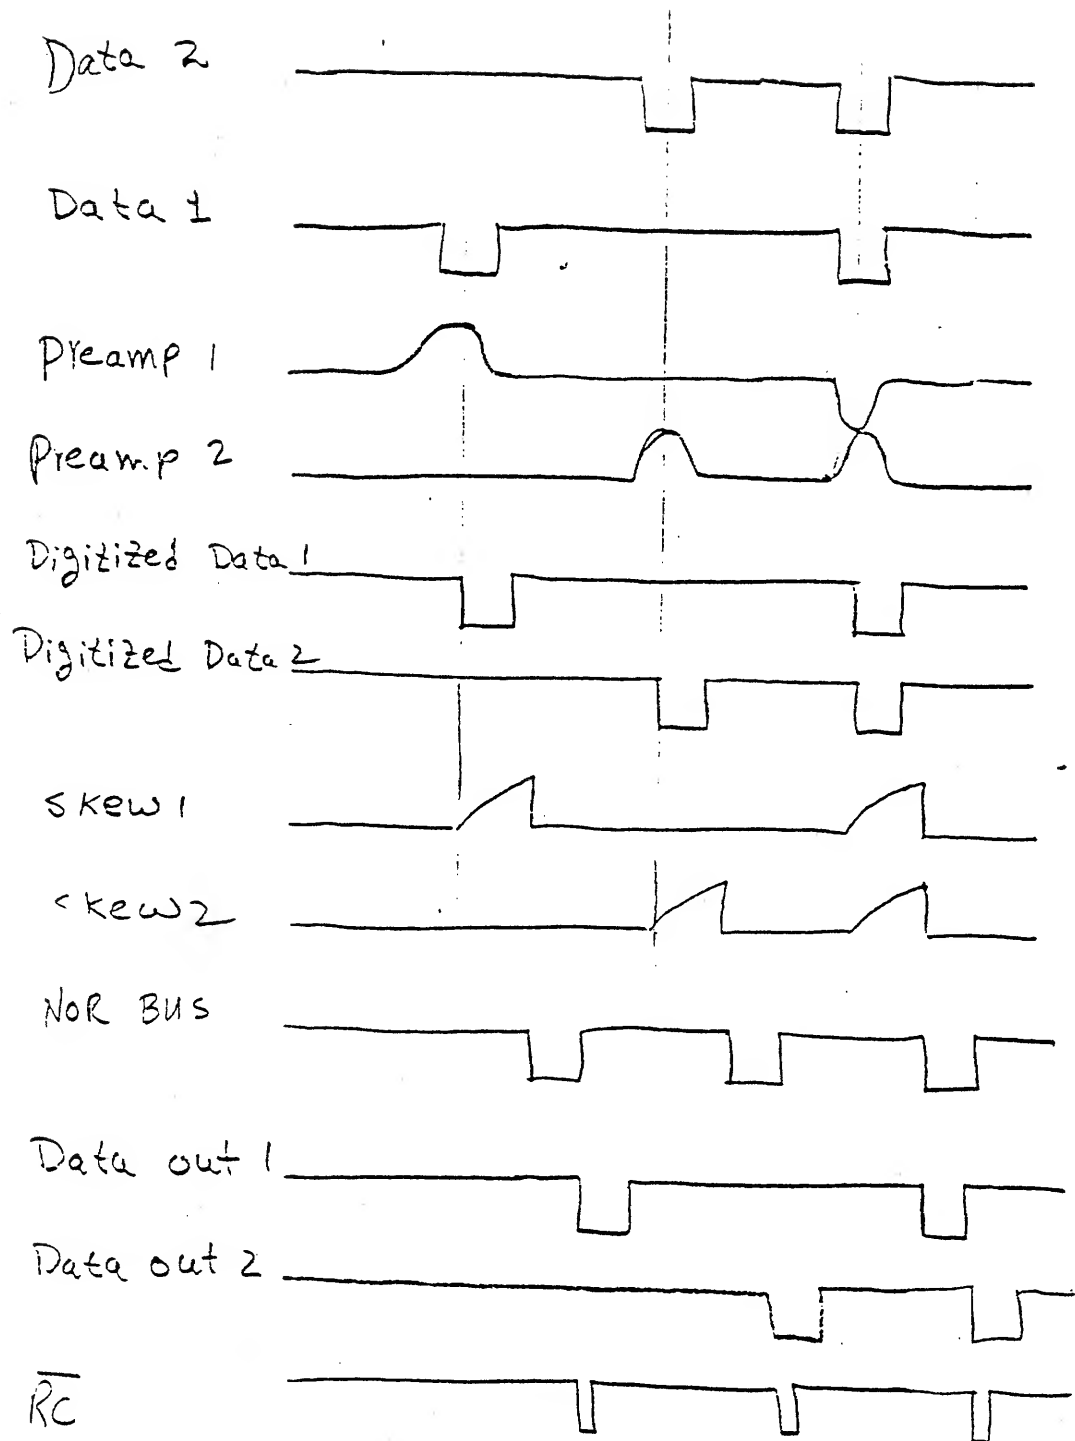 Data 2
Data 1
Preamp 1
Preamp 2
Digitized Data 1
Digitized Data 2
Skew 1
Skew 2
NOR BUS
Data out 1
Data out 2
R̅C̅